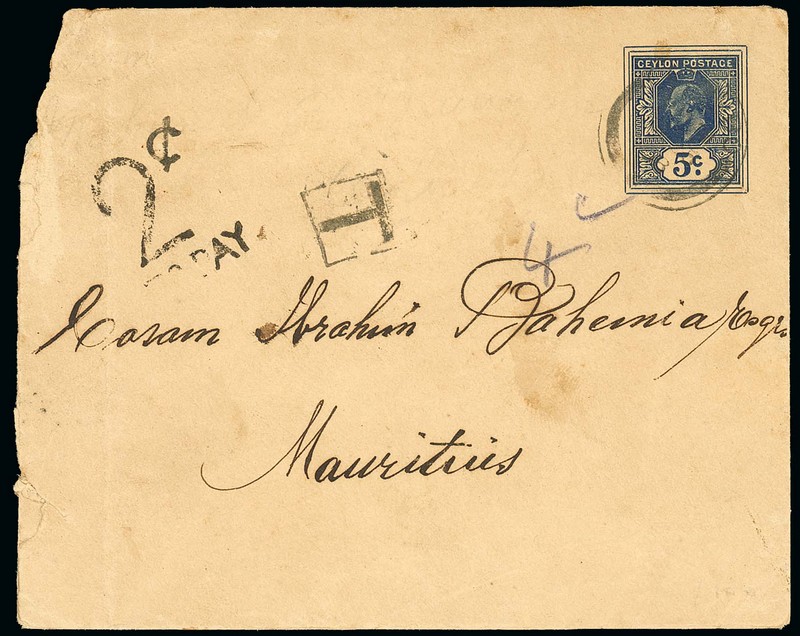 CEYLON POSTAGE
5c.
2¢
TO PAY
T
4c
Ibrahim Bahemia Esqre
Mauritius